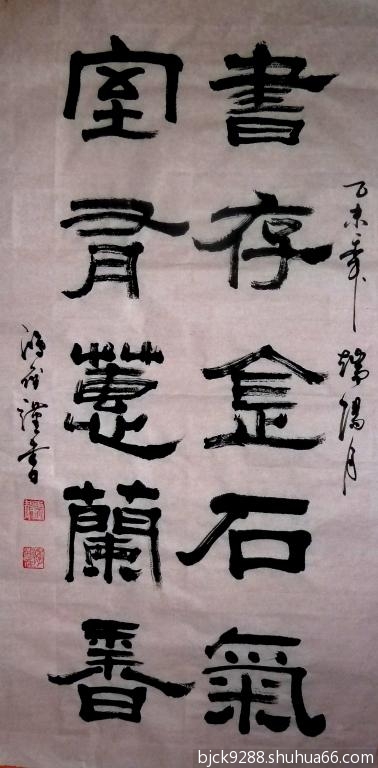 乙未年端陽月
書存金石氣
室有蕙蘭香
謹書
bjck9288.shuhua66.com